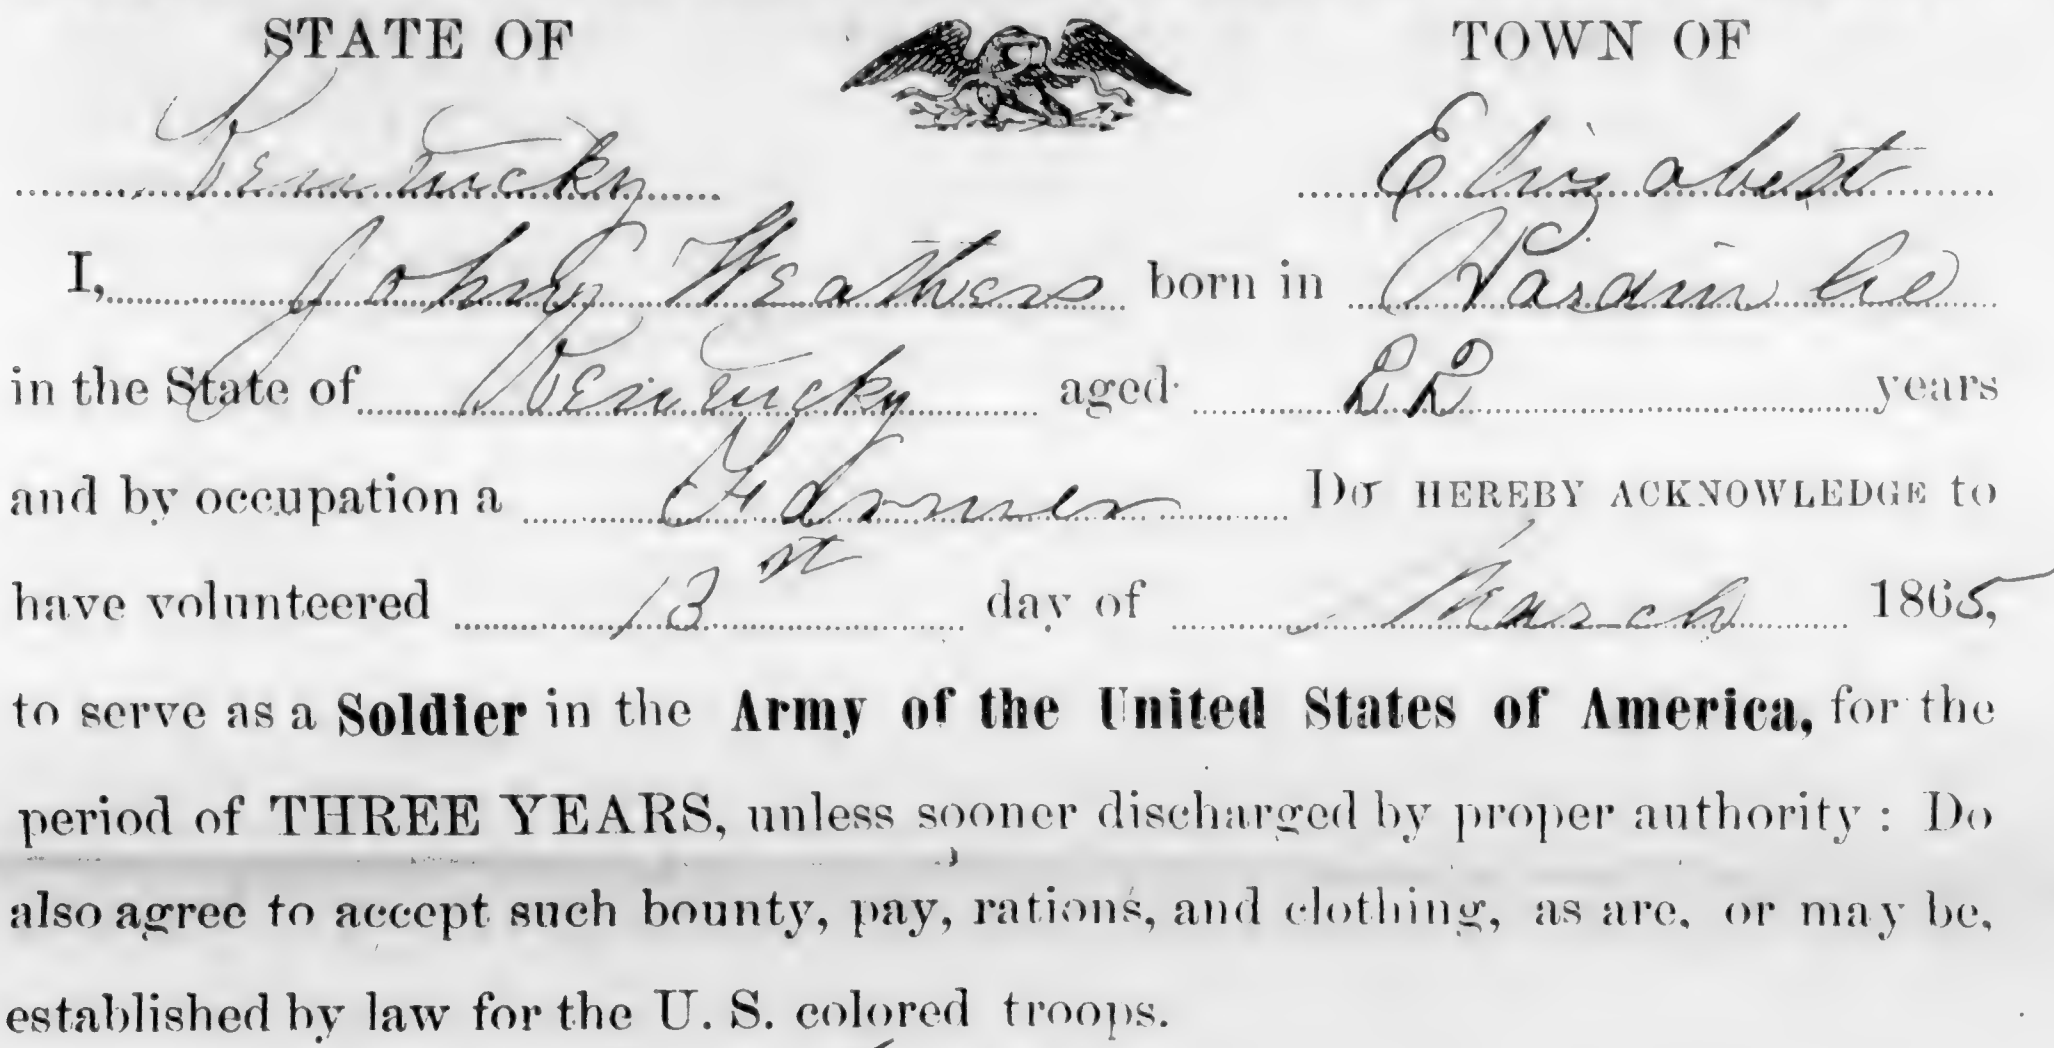 STATE OF TOWN OF
Kentucky Elizabest
I, John Weathers born in Hardin Co
in the State of Kentucky aged 22 years
and by occupation a Farmer DO HEREBY ACKNOWLEDGE to
have volunteered 13st day of March 1865,
to serve as a Soldier in the Army of the United States of America, for the
period of THREE YEARS, unless sooner discharged by proper authority: Do
also agree to accept such bounty, pay, rations, and clothing, as are, or may be,
established by law for the U. S. colored troops.